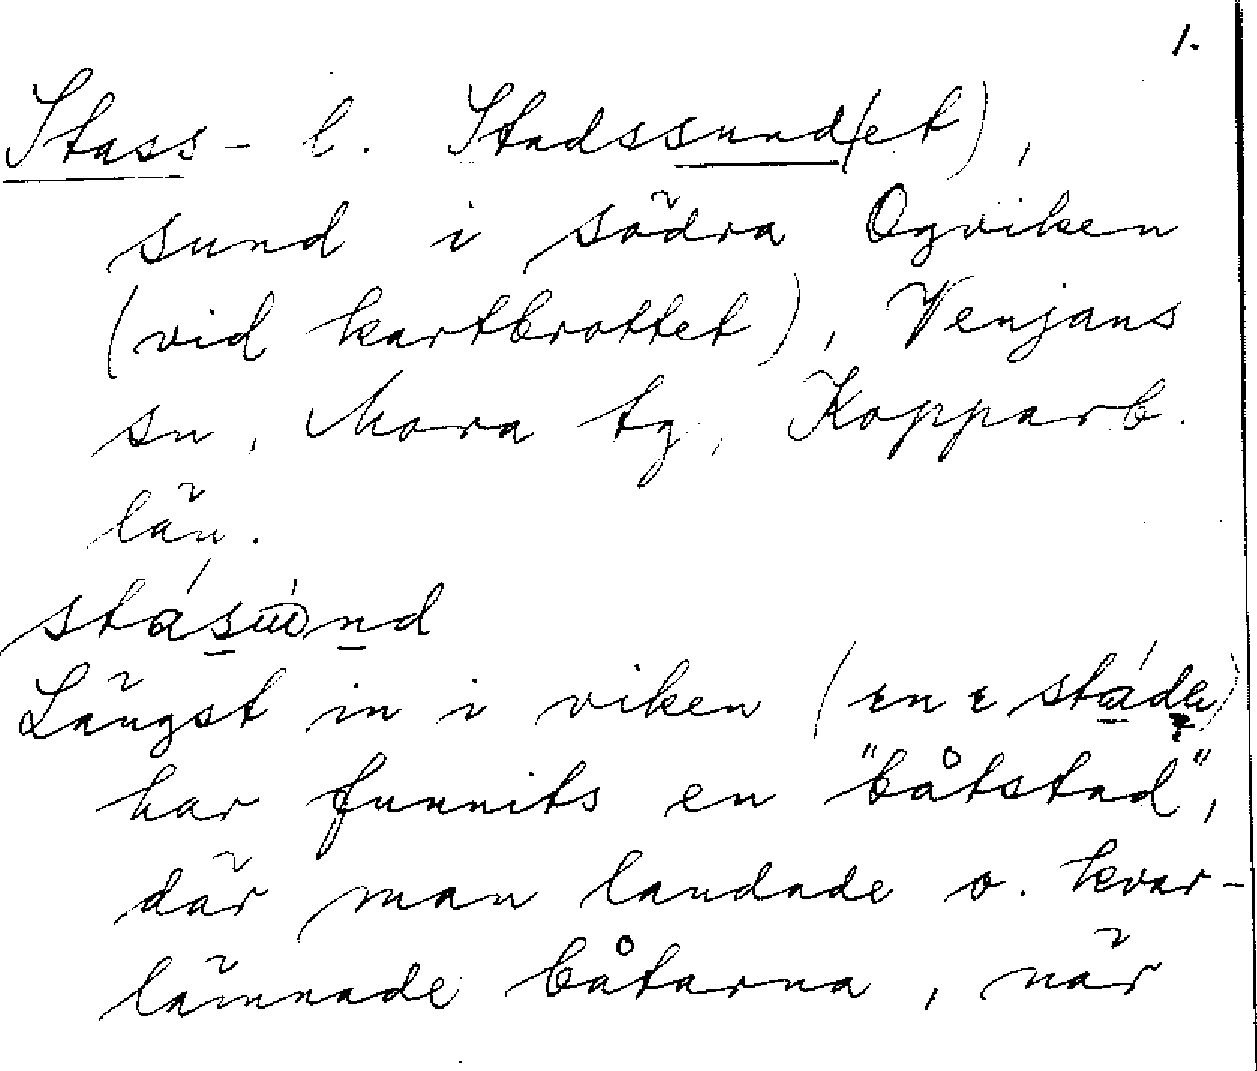 1.
Stass- l. Stadssund(et),
sund i södra Ogviken
(vid kartbrottet), Venjans
sn, Mora tg, Kopparb.
län.
Längst in i viken
har funnits en "båtstad",
där man landade o. kvar-
lämnade båtarna, när